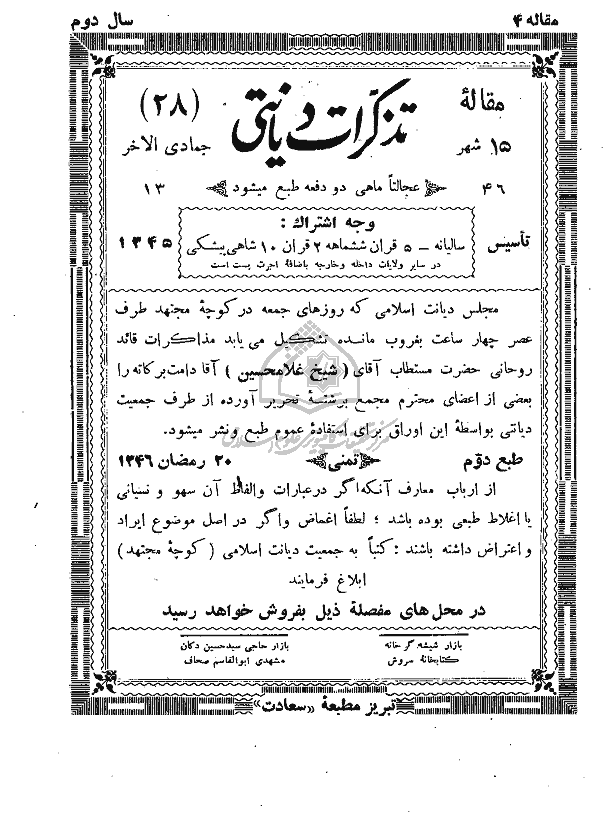 مقاله ۴ سال دوم
مقالهٔ تذکرات دیانتی (۲۸)
۱۵ شهر جمادی الاخر
۴۶ عجالتاً ماهی دو دفعه طبع میشود ۱۳
وجه اشتراک :
تأسیس سالیانه – ۵ قران ششماهه ۲ قران ۱۰ شاهی پیشکی ۱۳۴۵
در سایر ولایات داخله وخارجه باضافهٔ اجرت پست است
مجلس دیانت اسلامی که روزهای جمعه در کوچهٔ مجتهد طرف
عصر چهار ساعت بغروب مانده تشکیل می یابد مذاکرات قائد
روحانی حضرت مستطاب آقای ( شیخ غلامحسین ) آقا دامت برکاته را
بعضی از اعضای محترم مجمع برشتهٔ تحریر آورده از طرف جمعیت
دیانتی بواسطهٔ این اوراق برای استفادهٔ عموم طبع ونشر میشود.
طبع دوّم تمنی ۲۰ رمضان ۱۳۴۶
از ارباب معارف آنکه اگر در عبارات والفاظ آن سهو و نسیانی
یا اغلاط طبعی بوده باشد ؛ لطفاً اغماض واگر در اصل موضوع ایراد
و اعتراض داشته باشند : کتباً به جمعیت دیانت اسلامی ( کوچهٔ مجتهد )
ابلاغ فرمایند
در محل های مفصلهٔ ذیل بفروش خواهد رسید
بازار شیشه گر خانه بازار حاجی سیدحسین دکان
کتابخانهٔ سروش مشهدی ابوالقاسم صحاف
تبریز مطبعهٔ «سعادت»